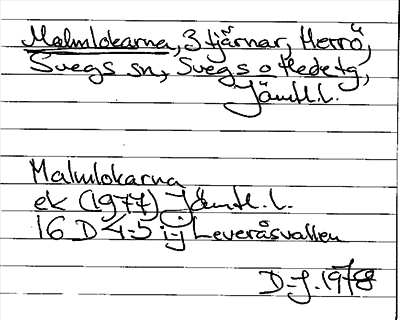 Malmlokarna, 3 tjärnar, Herrö,
Svegs sn, Svegs o Hede tg,
Jämtl.l.
Malmlokarna
ek (1977) Jämtl. l.
16 D 4-5 i-j Leveråsvallen
D-J. 1978